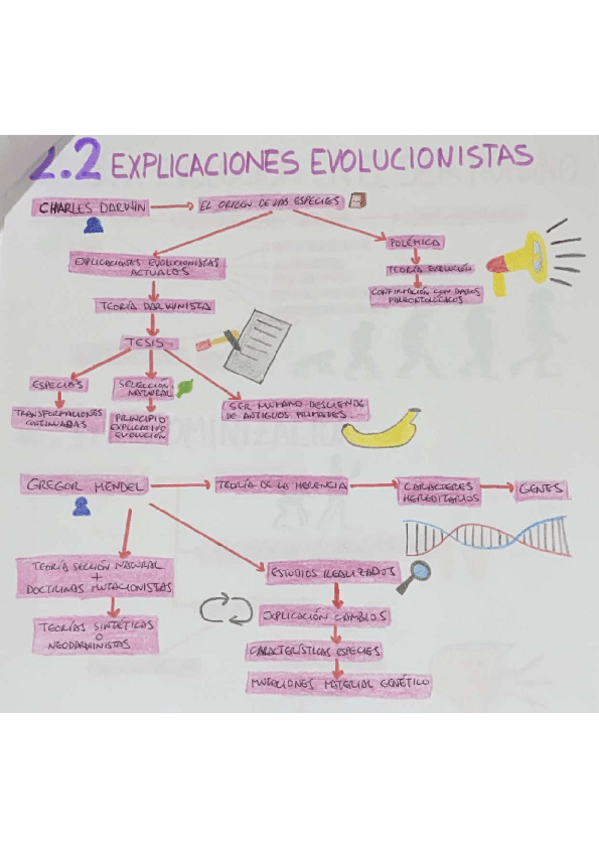 2.2 EXPLICACIONES EVOLUCIONISTAS
CHARLES DARWIN
EL ORIGEN DE LAS ESPECIES
POLÉMICA
EXPLICACIONES EVOLUCIONISTAS
ACTUALES
TEORÍA EVOLUCIÓN
CONFIRMACIÓN CON DATOS
PALEONTOLÓGICOS
TEORÍA DARWINISTA
TESIS
ESPECIES
SELECCIÓN
NATURAL
TRANSFORMACIONES
CONTINUADAS
PRINCIPIO
EXPLICATIVO
EVOLUCIÓN
SER HUMANO DESCIENDE
DE ANTIGUOS PRIMATES
GREGOR MENDEL
TEORÍA DE LA HERENCIA
CARACTERES
HEREDITARIOS
GENES
TEORÍA SECCIÓN NATURAL
+
DOCTRINAS MUTACIONISTAS
TEORÍAS SINTÉTICAS
O
NEODARWINISTAS
ESTUDIOS REALIZADOS
EXPLICACIÓN CAMBIOS
CARACTERÍSTICAS ESPECIES
MUTACIONES MATERIAL GENÉTICO